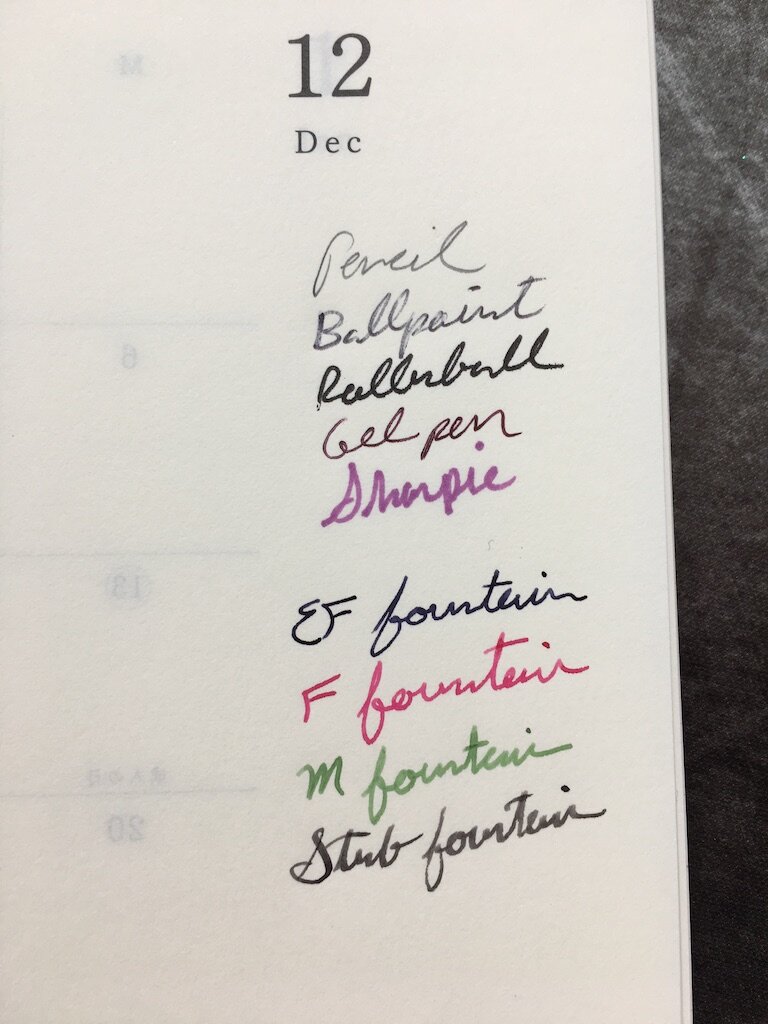 12
Dec
Pencil
Ballpoint
Rollerball
Gel pen
Sharpie
EF fountain
F fountain
M fountain
Stub fountain
M
6
13
成人の日
20